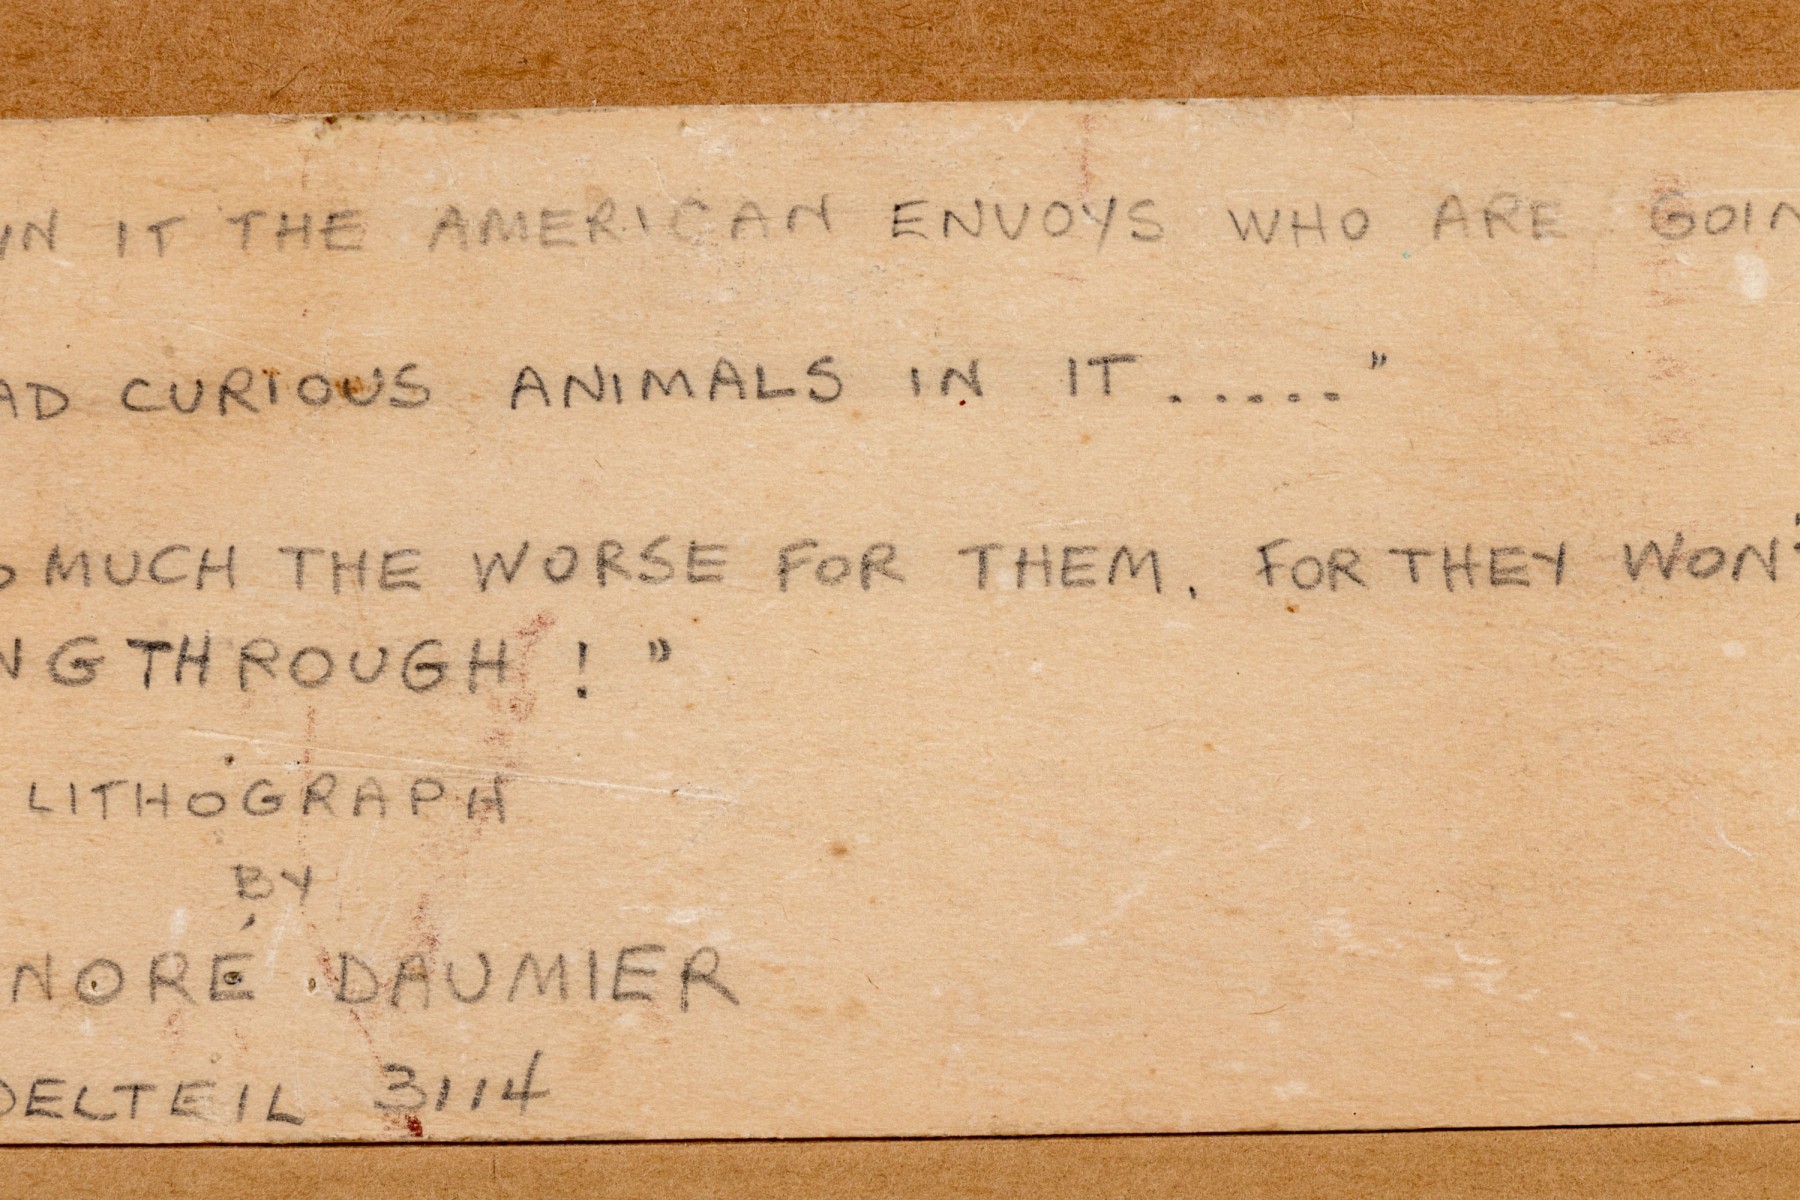 WN IT THE AMERICAN ENVOYS WHO ARE GOIN
AD CURIOUS ANIMALS IN IT ....."
O MUCH THE WORSE FOR THEM. FOR THEY WON'
NG THROUGH ! "
LITHOGRAPH
BY
NORÉ DAUMIER
DELTEIL 3114